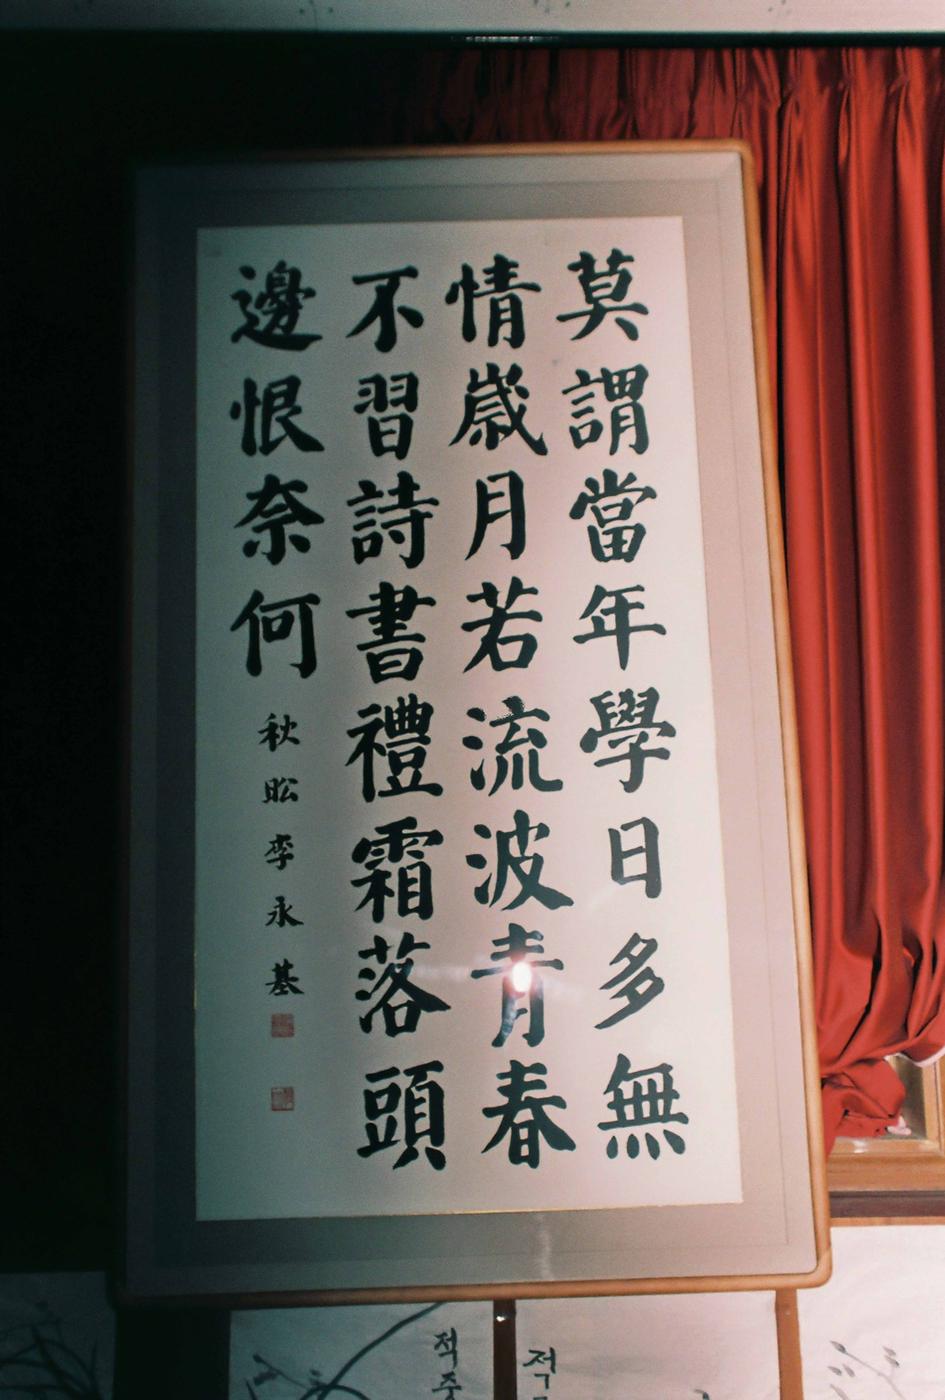 莫謂當年學日多無
情歲月若流波青春
不習詩書禮霜落頭
邊恨奈何
秋昖李永基
적중
적